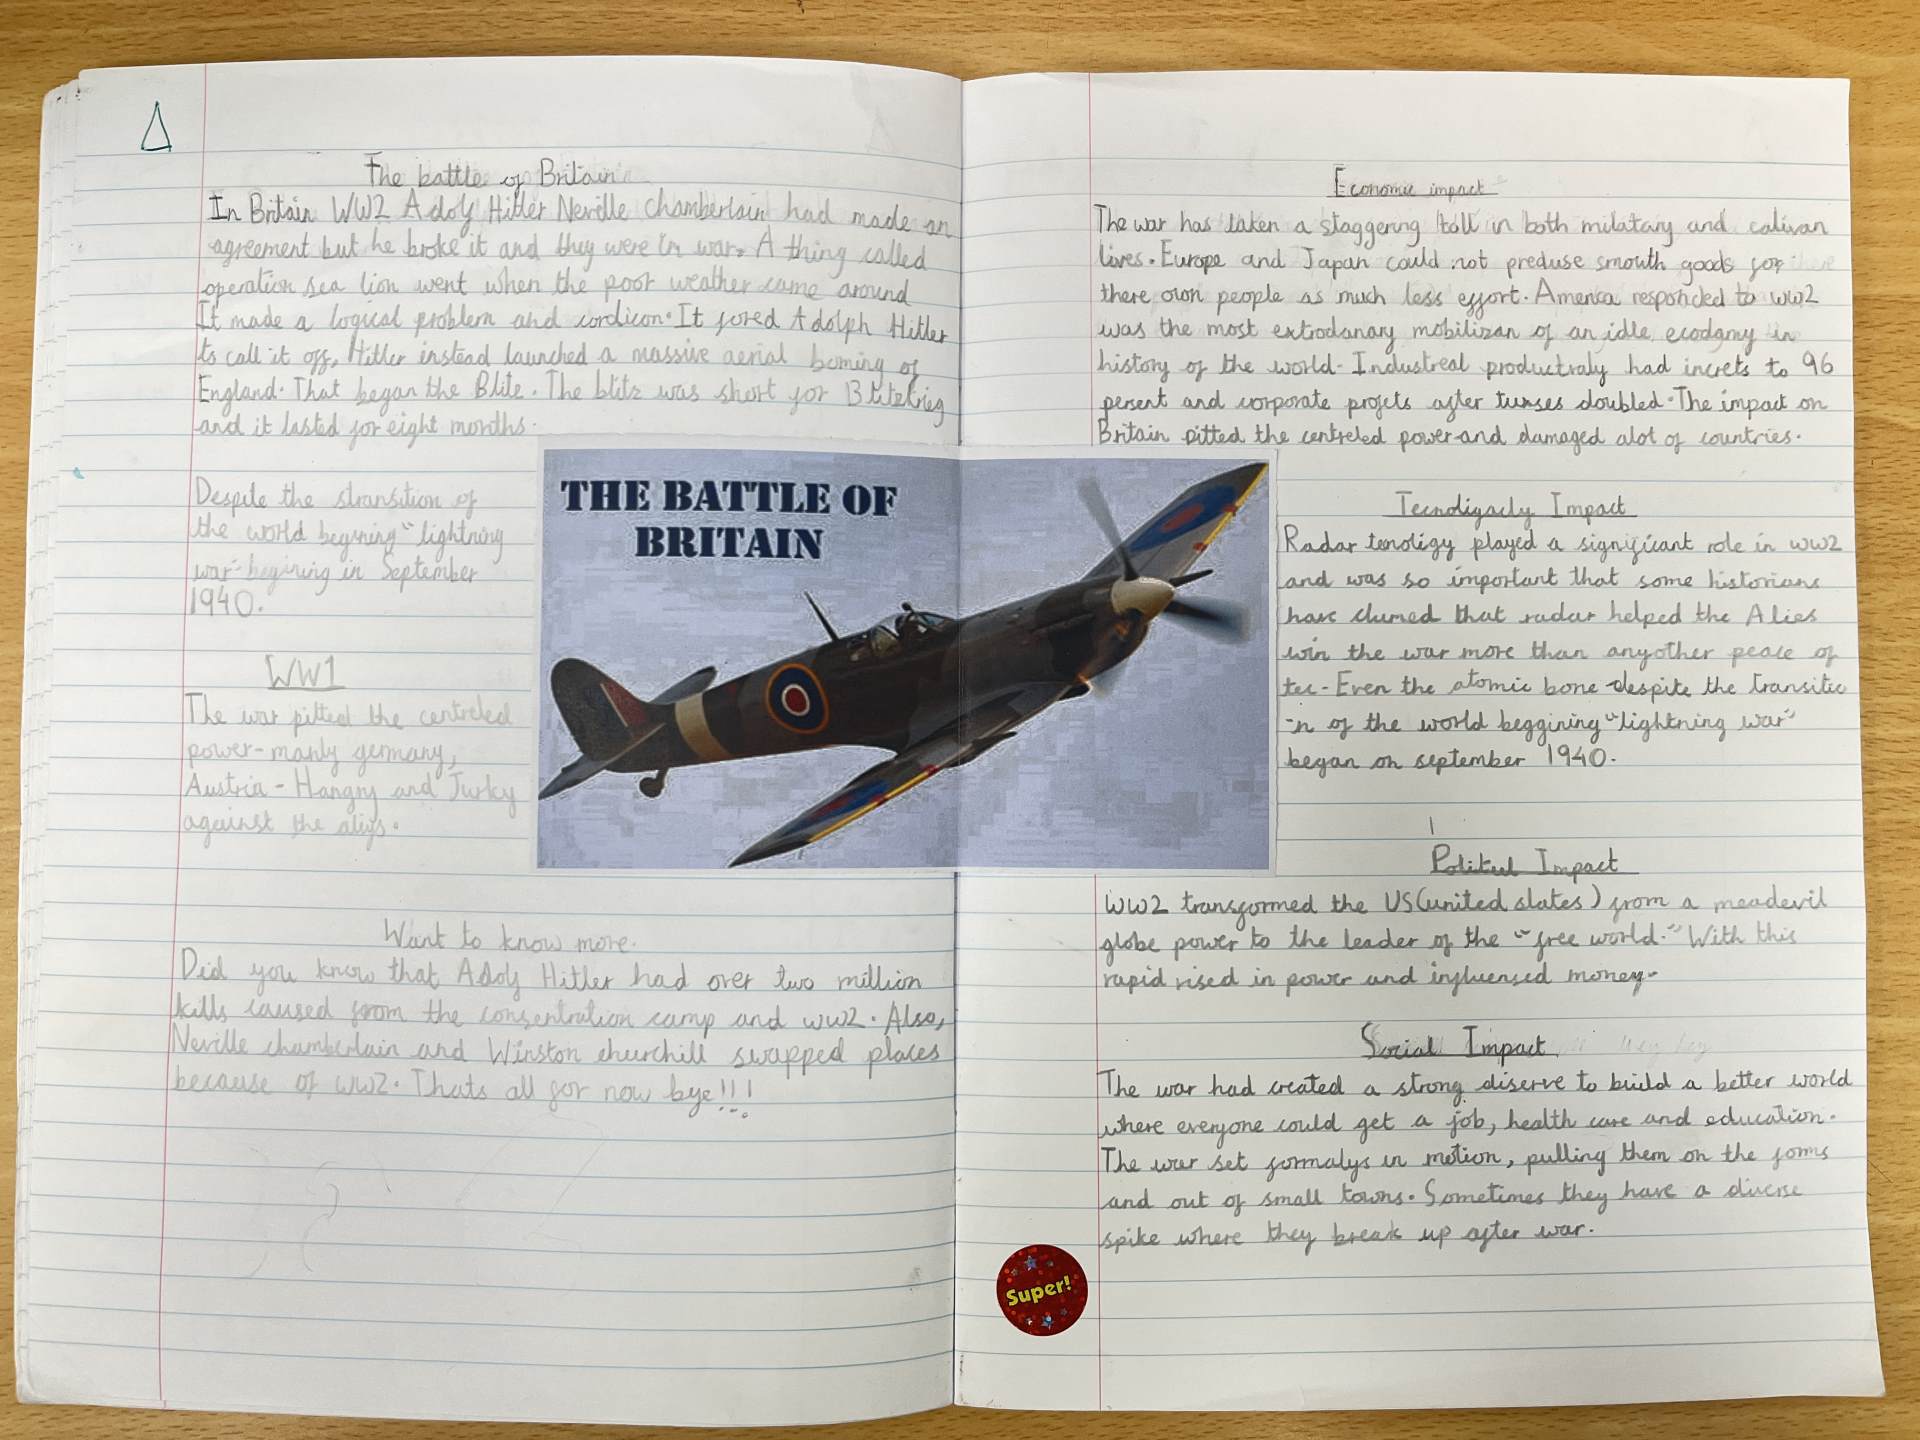 The battle of Britain
In Britain WW2 Adolf Hitler Neville chamberlain had made an
agreement but he broke it and they were in war. A thing called
operation sea lion went when the poor weather came around
It made a logical problem and cordicon. It fored Adolph Hitler
to call it off, Hitler instead launched a massive aerial boming of
England. That began the Blite. The blitz was short for Blitzkrieg
and it lasted for eight months.
Despite the stransition of
the world begining "lightning
war" begining in September
1940.
WW1
The war pitted the centreled
power-manly germany,
Austria - Hangry and Turky
against the aliys.
Want to know more.
Did you know that Adolf Hitler had over two million
kills caused from the consentration camp and ww2. Also,
Neville chamberlain and Winston churchill swapped places
because of ww2. Thats all for now bye!!!
THE BATTLE OF
BRITAIN
Economic impact
The war has taken a staggering toll in both milatary and calivan
lives. Europe and Japan could not preduse smouth goods for
there own people as much less effort. America responded to ww2
was the most extrodanary mobilizan of an idle ecodgmy in
history of the world. Industreal productraly had increts to 96
persent and corporate projcts after tumses doubled. The impact on
Britain pitted the centreled power and damaged alot of countries.
Tecnoligacly Impact
Radar tenoligy played a significant role in ww2
and was so important that some historians
have clumed that radar helped the Alies
win the war more than anyother peace of
tec - Even the atomic bone despite the transitio
-n of the world beggining "lightning war"
began on september 1940.
Politcul Impact
WW2 transformed the US(united states) from a meadevil
globe power to the leader of the "free world." With this
rapid rised in power and influensed money.
Social Impact
The war had created a strong diserve to build a better world
where everyone could get a job, health care and education.
The war set formalys in motion, pulling them on the forms
and out of small towns. Sometimes they have a diverse
spike where they break up after war.
Super!